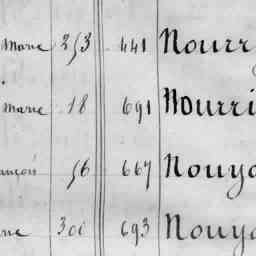 Marie 253 441 Nourr
Marie 18 691 Nourri
ançois 56 667 Nouya
300 693 Nouya